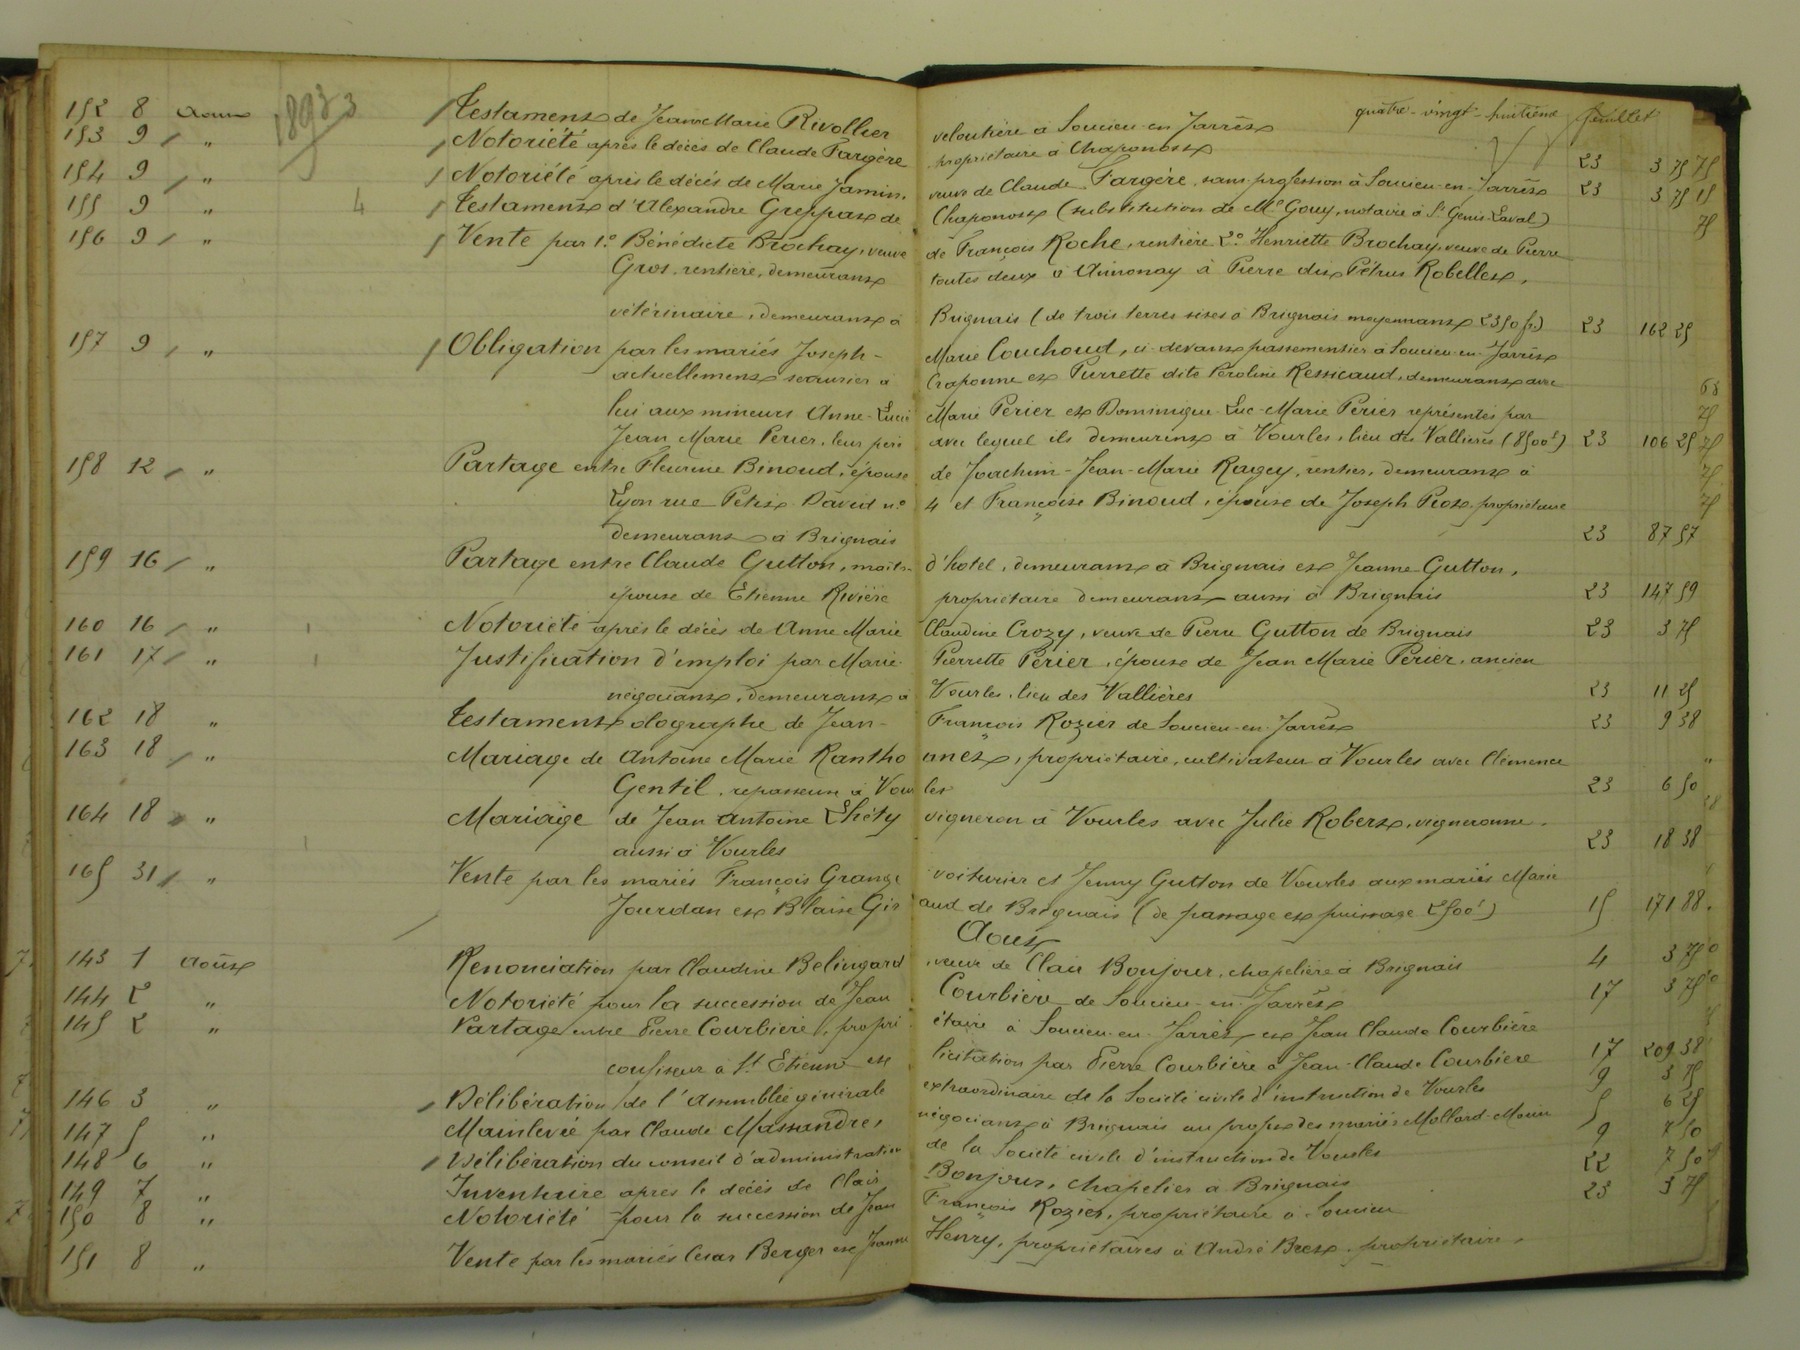 quatre-vingt-huitième feuillet
152 8 Aout 1893 Testament de Jean Marie Rivollier veloutière à Soucieu-en-Jarrest
153 9 " Notoriété après le décès de Claude Fargère propriétaire à Chaponost 23 3 75
154 9 " Notoriété après le décès de Marie Jamin, veuve de Claude Fargère, sans profession à Soucieu-en-Jarrest 23 3 75
155 9 " Testament d'Alexandre Greppat de Chaponost (substitution de Me Gouy, notaire à St Genis-Laval)
156 9 " Vente par 1o Bénédicte Brochay, veuve de François Roche, rentière 2o Henriette Brochay, veuve de Pierre
Gros, rentière, demeurant toutes deux à Annonay à Pierre dit Pétrus Robellet,
vétérinaire, demeurant à Brignais (de trois terres sises à Brignais moyennant 2350 f.) 23 162 25
157 9 " Obligation par les mariés Joseph-Marie Couchoud, ci-devant passementier à Soucieu-en-Jarrest
actuellement à Craponne et Pierrette dite Péroline Ressicaud, demeurant avec
lui aux mineurs Anne-Lucie Marie Perier et Dominique-Luc-Marie Perier représentés par
Jean Marie Perier, leur père avec lequel ils demeurent à Vourles, lieu des Vallières (8500f) 23 106 25
158 12 " Partage entre Fleurine Binoud, épouse de Joachim-Jean-Marie Ragey, rentier, demeurant à
Lyon rue Petit David no 4 et Françoise Binoud, épouse de Joseph Piot, propriétaire
demeurant à Brignais 23 87 57
159 16 " Partage entre Claude Gutton, maître d'hotel, demeurant à Brignais et Jeanne Gutton,
épouse de Etienne Rivière propriétaire demeurant aussi à Brignais 23 147 59
160 16 " Notoriété après le décès de Anne Marie Claudine Crozy, veuve de Pierre Gutton de Brignais 23 3 75
161 17 " Justification d'emploi par Marie Pierrette Périer, épouse de Jean Marie Périer, ancien
négociant, demeurant à Vourles, lieu des Vallières 23 11 25
162 18 " Testament olographe de Jean-François Rozier de Soucieu-en-Jarrest 23 9 38
163 18 " Mariage de Antoine Marie Ranthonnet, propriétaire, cultivateur à Vourles avec Clémence
Gentil, repasseuse à Vourles 23 6 50
164 18 " Mariage de Jean Antoine Lhéty vigneron à Vourles avec Julie Robert, vigneronne
aussi à Vourles 23 18 38
165 31 " Vente par les mariés François Grange voiturier et Jenny Gutton de Vourles aux mariés Marie
Jourdan et Blaise Giraud de Brignais (de passage et puisage 2500f) 15 171 88
Aout
143 1 août Renonciation par Claudine Belingard, veuve de Clair Bonjour, chapelière à Brignais 4 3 75
144 2 " Notoriété pour la succession de Jean Courbière de Soucieu-en-Jarrest 17 3 75
145 2 " Partage entre Pierre Courbière, propriétaire à Soucieu-en-Jarrest et Jean Claude Courbière
confiseur à St Etienne et licitation par Pierre Courbière à Jean-Claude Courbière 17 209 38
146 3 " Délibération de l'assemblée générale extraordinaire de la Société civile d'instruction de Vourles 9 3 75
147 5 " Mainlevée par Claude Massandre, négociant à Brignais au profit des mariés Mollard-Morin 5 6 25
148 6 " Délibération du conseil d'administration de la Société civile d'instruction de Vourles 9 7 50
149 7 " Inventaire après le décès de Clair Bonjour, chapelier à Brignais 22 7 50
150 8 " Notoriété pour la succession de Jean François Rozier, propriétaire à Soucieu 23 3 75
151 8 " Vente par les mariés César Berger et Jeanne Henry, propriétaires à André Bret, propriétaire,